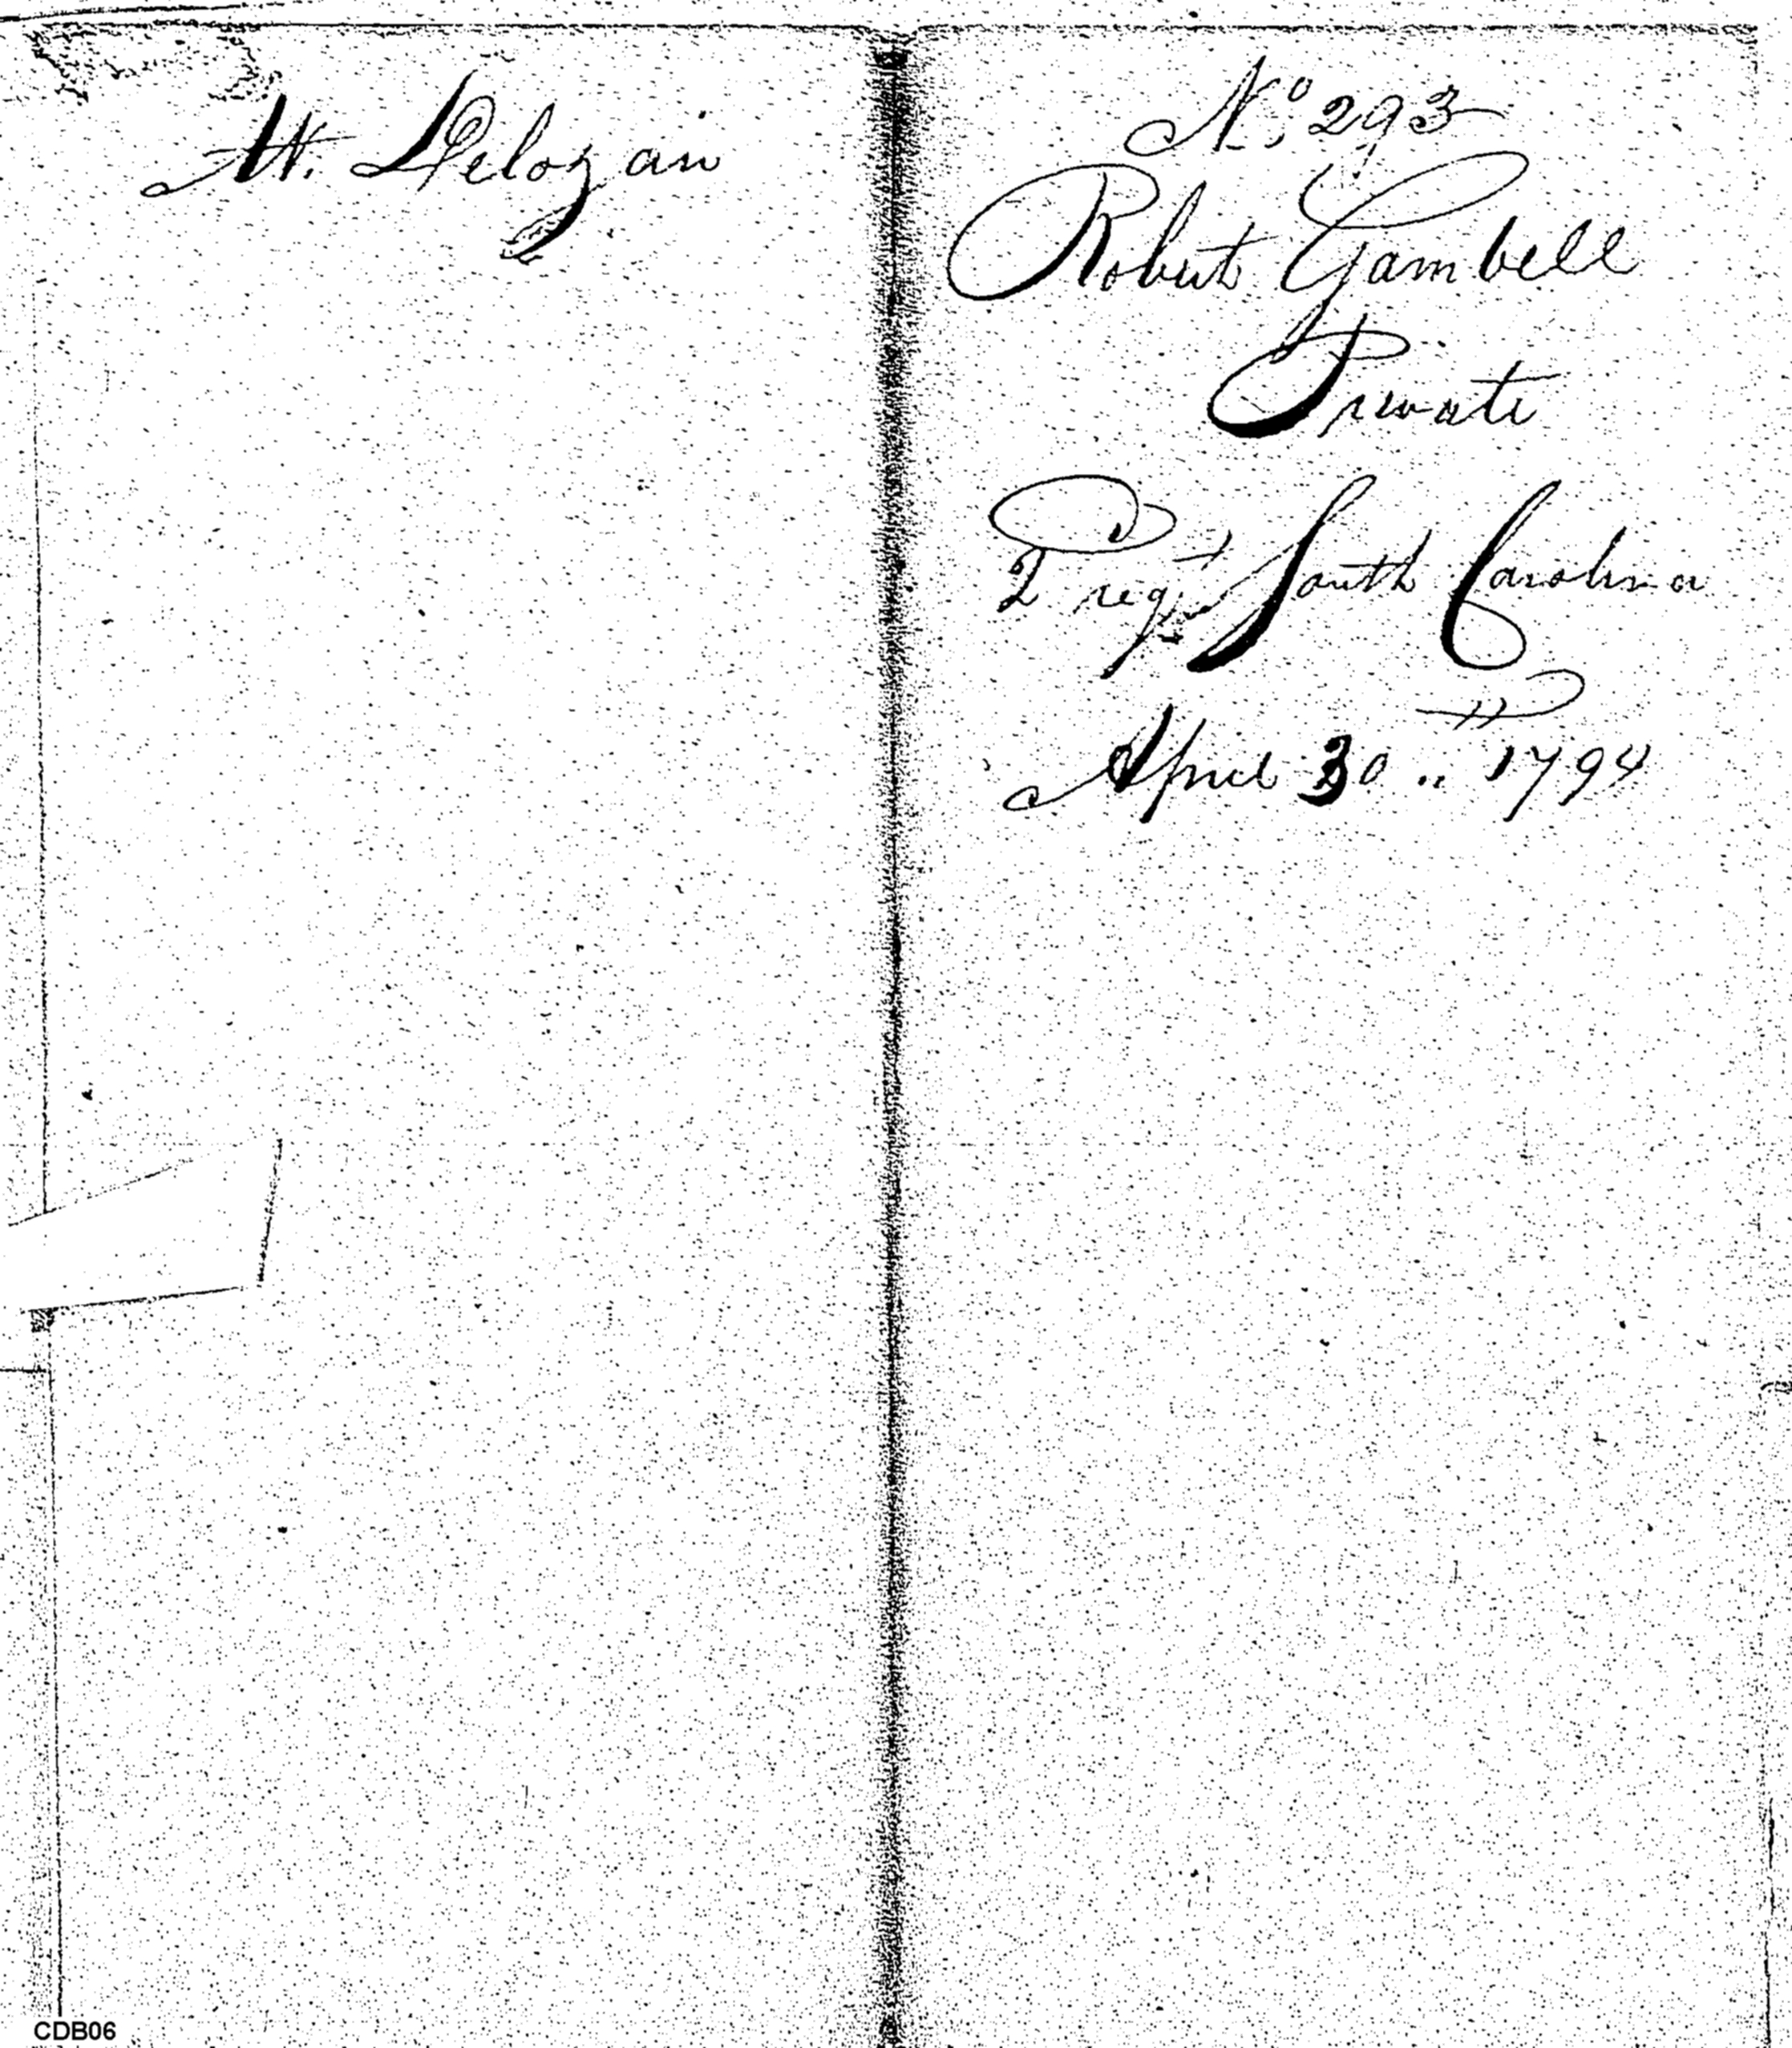 W. Delozair
No. 293
Robert Gambell
Private
2 regt. South Carolina
April 30 .. 1794
CDB06